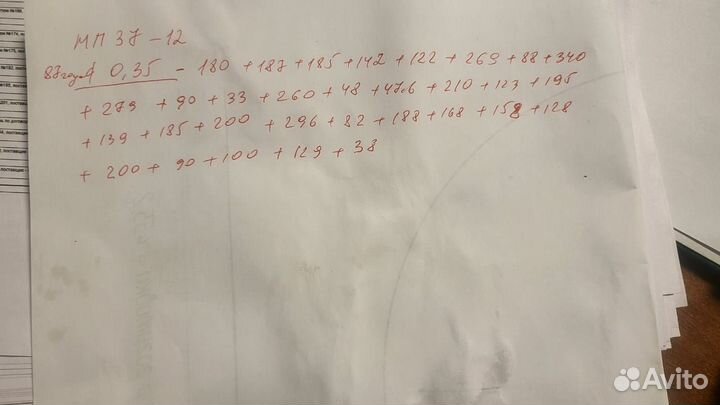 МП 37-12
87год ø 0,35 - 180 + 187 + 185 + 142 + 122 + 269 + 88 + 340
+ 279 + 90 + 33 + 260 + 48 + 476 + 210 + 123 + 195
+ 139 + 185 + 200 + 296 + 82 + 188 + 168 + 158 + 128
+ 200 + 90 + 100 + 129 + 38
Avito